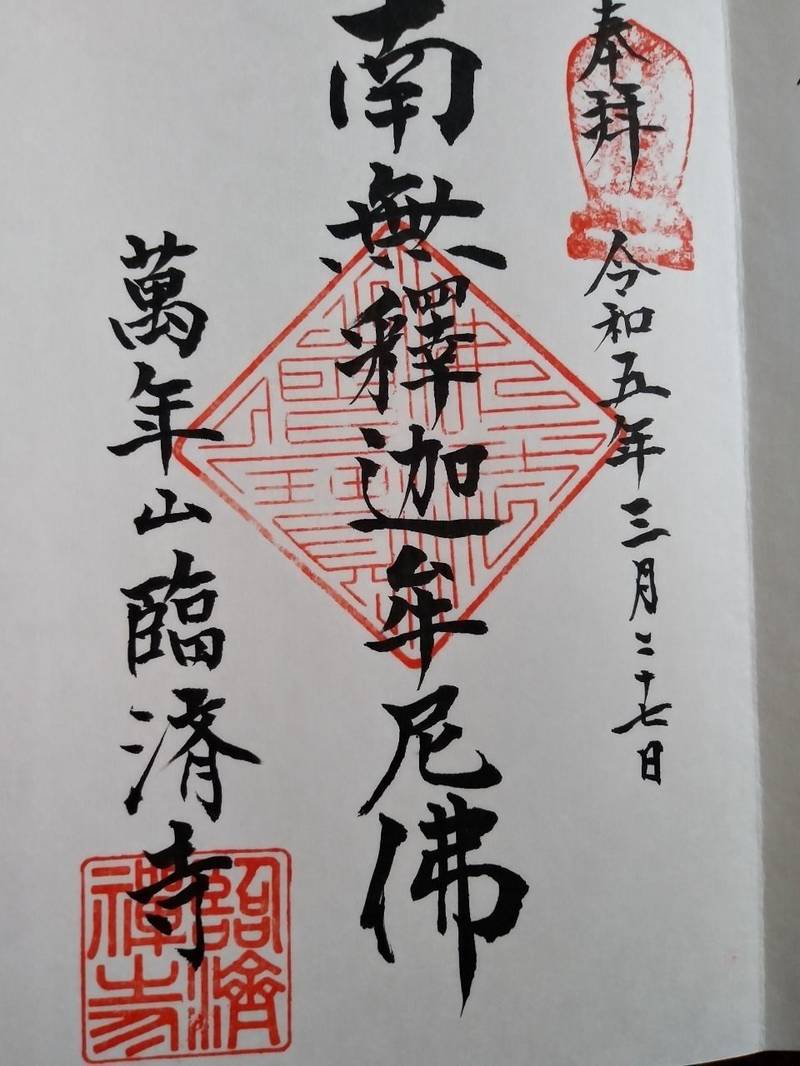 奉拜
令和五年三月二十七日
南無釋迦牟尼佛
萬年山臨濟寺
臨濟禅寺